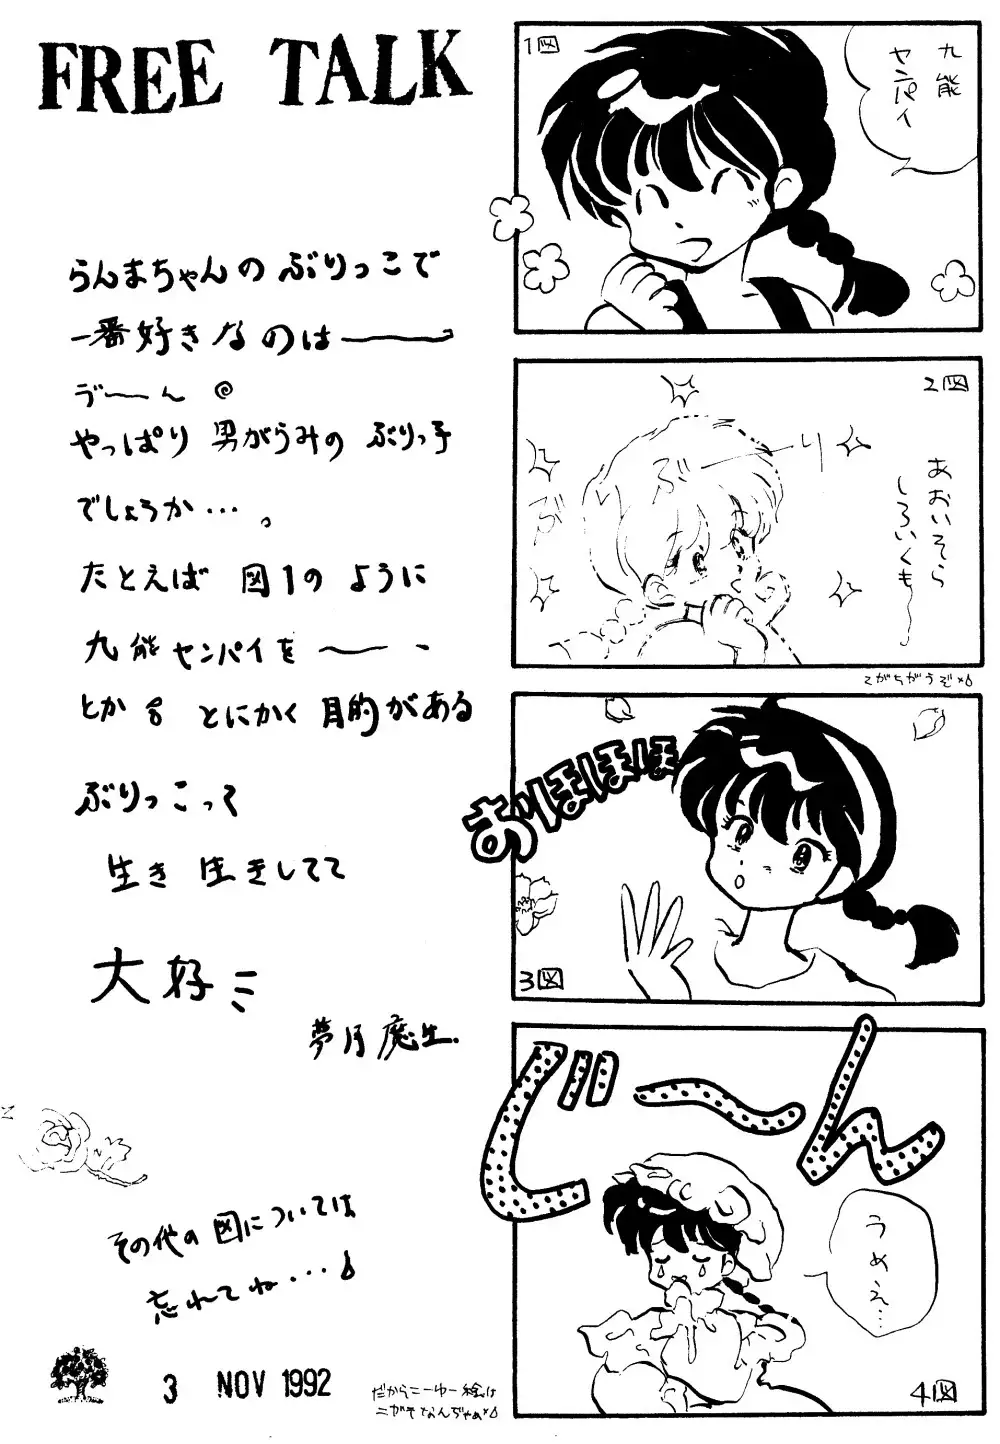 FREE TALK
らんまちゃんの ぶりっこで
一番好きなのは――
デ〜ん
やっぱり 男がらみの ぶりっ子
でしょうか…。
たとえば 図1の ように
九能センパイを――、
とか とにかく 目的がある
ぶりっこって
生き 生きしてて
大好
夢月 魔生.
その他の 図については
忘れてね…
3 NOV 1992
だからこーゆー絵は
1図
九能
センパイ
2図
ぶーり
ぶ
あおいそら
しろいくも〜
おほほほほ
3図
じーん
うめえ…
4図